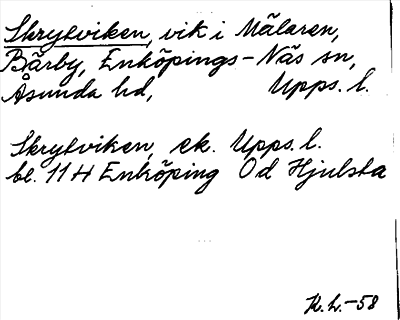 Skrytviken, vik i Mälaren,
Bärby, Enköpings-Näs sn,
Åsunda hd, Upps. l.
Skrytviken, ek. Upps. l.
bl. 11 H Enköping Od Hjulsta
K.L.-58